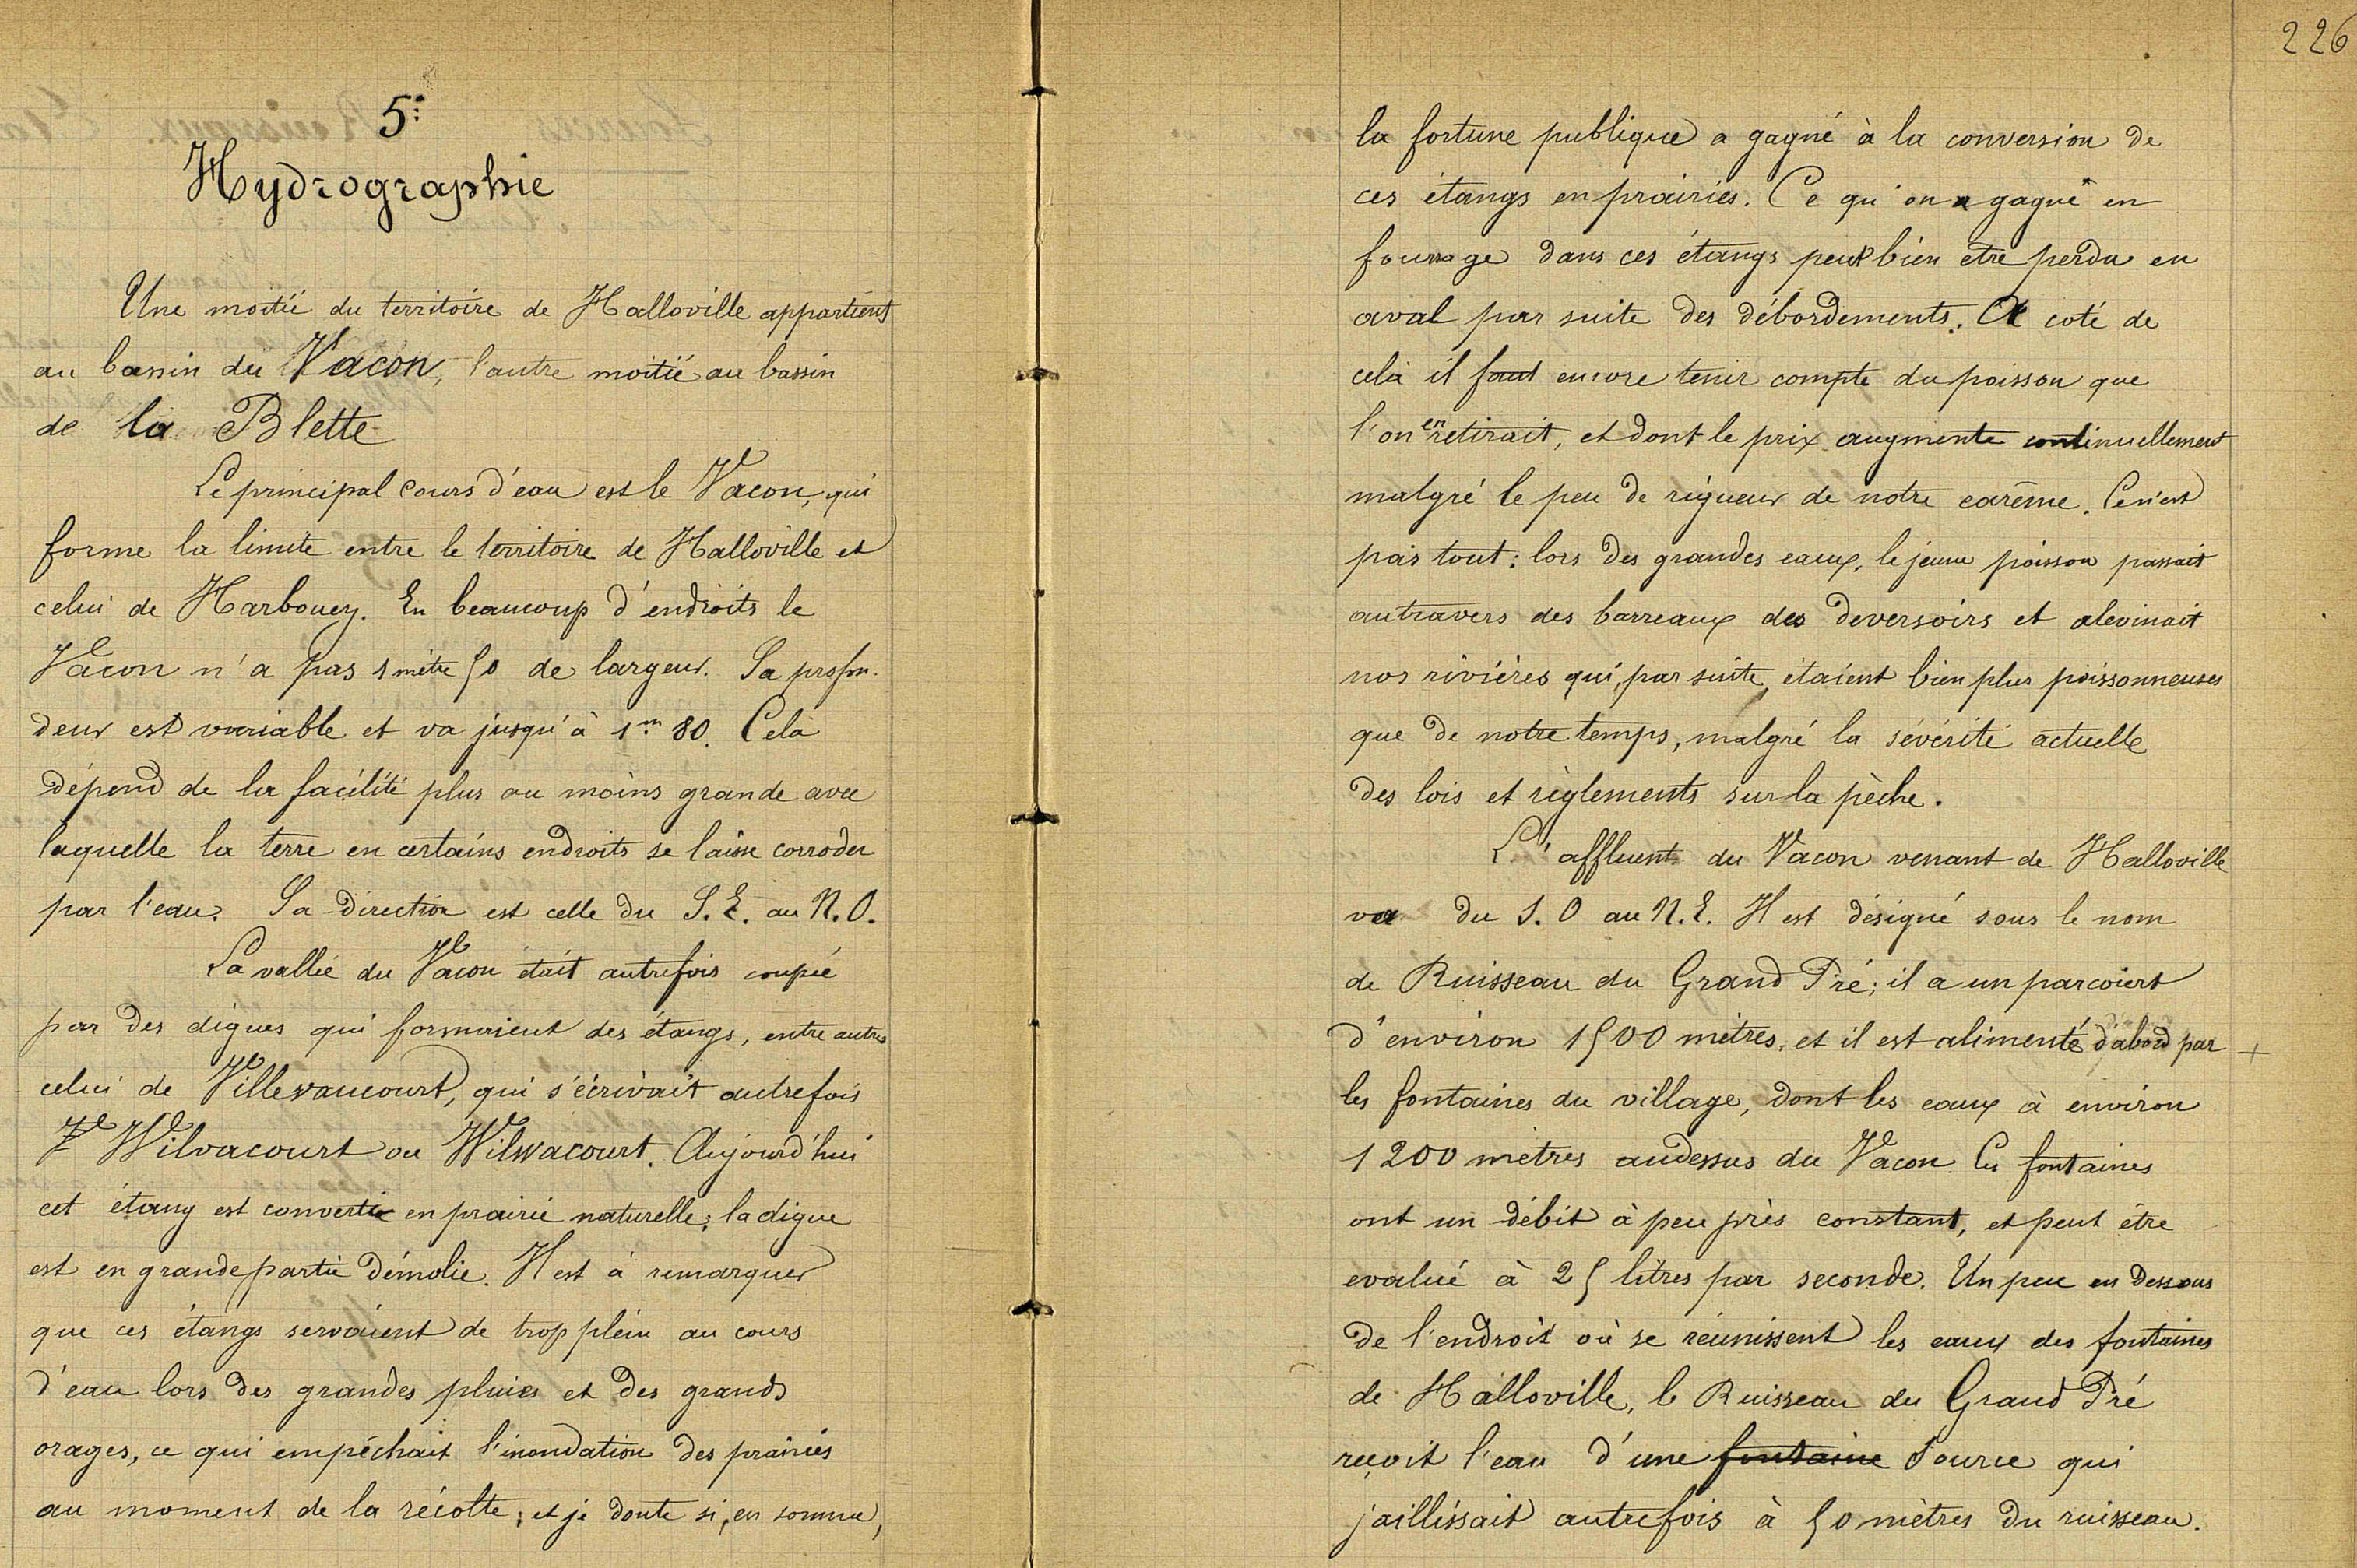 5°
Hydrographie
Une moitié du territoire de Halloville appartient
au bassin du Vacon, l'autre moitié au bassin
de la Blette
Le principal cours d'eau est le Vacon, qui
forme la limite entre le territoire de Halloville et
celui de Harbouey. En beaucoup d'endroits le
Vacon n'a pas 1 mètre 50 de largeur. Sa profon-
deur est variable et va jusqu'à 1m 80. Celà
dépend de la facilité plus ou moins grande avec
laquelle la terre en certains endroits se laisse corroder
par l'eau. Sa direction est celle du S.E. au N.O.
La vallée du Vacon était autrefois coupée
par des digues qui formaient des étangs, entre autres
celui de Villevaucourt, qui s'écrivait autrefois
Wilvacourt ou Wilwacourt. Aujourd'hui
cet étang est convertie en prairie naturelle; la digue
est en grande partie démolie. Il est à remarquer
que ces étangs servaient de trop plein au cours
d'eau lors des grandes pluies et des grands
orages, ce qui empêchait l'inondation des prairies
au moment de la récolte; et je doute si, en somme,
226
la fortune publique a gagné à la conversion de
ces étangs en prairies. Ce qu'on a gagné en
fourrage dans ces étangs peut bien etre perdu en
aval par suite des débordements. A coté de
celà il faut encore tenir compte du poisson que
l'on en retirait, et dont le prix augmente continuellement
malgré le peu de rigueur de notre carême. Ce n'est
pas tout: lors des grandes eaux, le jeune poisson passait
autravers des barreaux des deversoirs et alevinait
nos rivières qui, par suite, étaient bien plus poissonneuses
que de notre temps, malgré la sévérité actuelle
des lois et règlements sur la pèche.
L'affluent du Vacon venant de Halloville
va du S.O au N.E. Il est désigné sous le nom
de Ruisseau du Grand Pré; il a un parcourt
d'environ 1500 mètres, et il est alimenté d'abord par +
les fontaines du village, dont les eaux à environ
1200 mètres audessus du Vacon. Ces fontaines
ont un débit à peu près constant, et peut être
evalué à 25 litres par seconde. Un peu en dessous
de l'endroit où se réunissent les eaux des fontaines
de Halloville, le Ruisseau du Grand Pré
reçoit l'eau d'une fontaine source qui
jaillissait autrefois à 50 mètres du ruisseau.